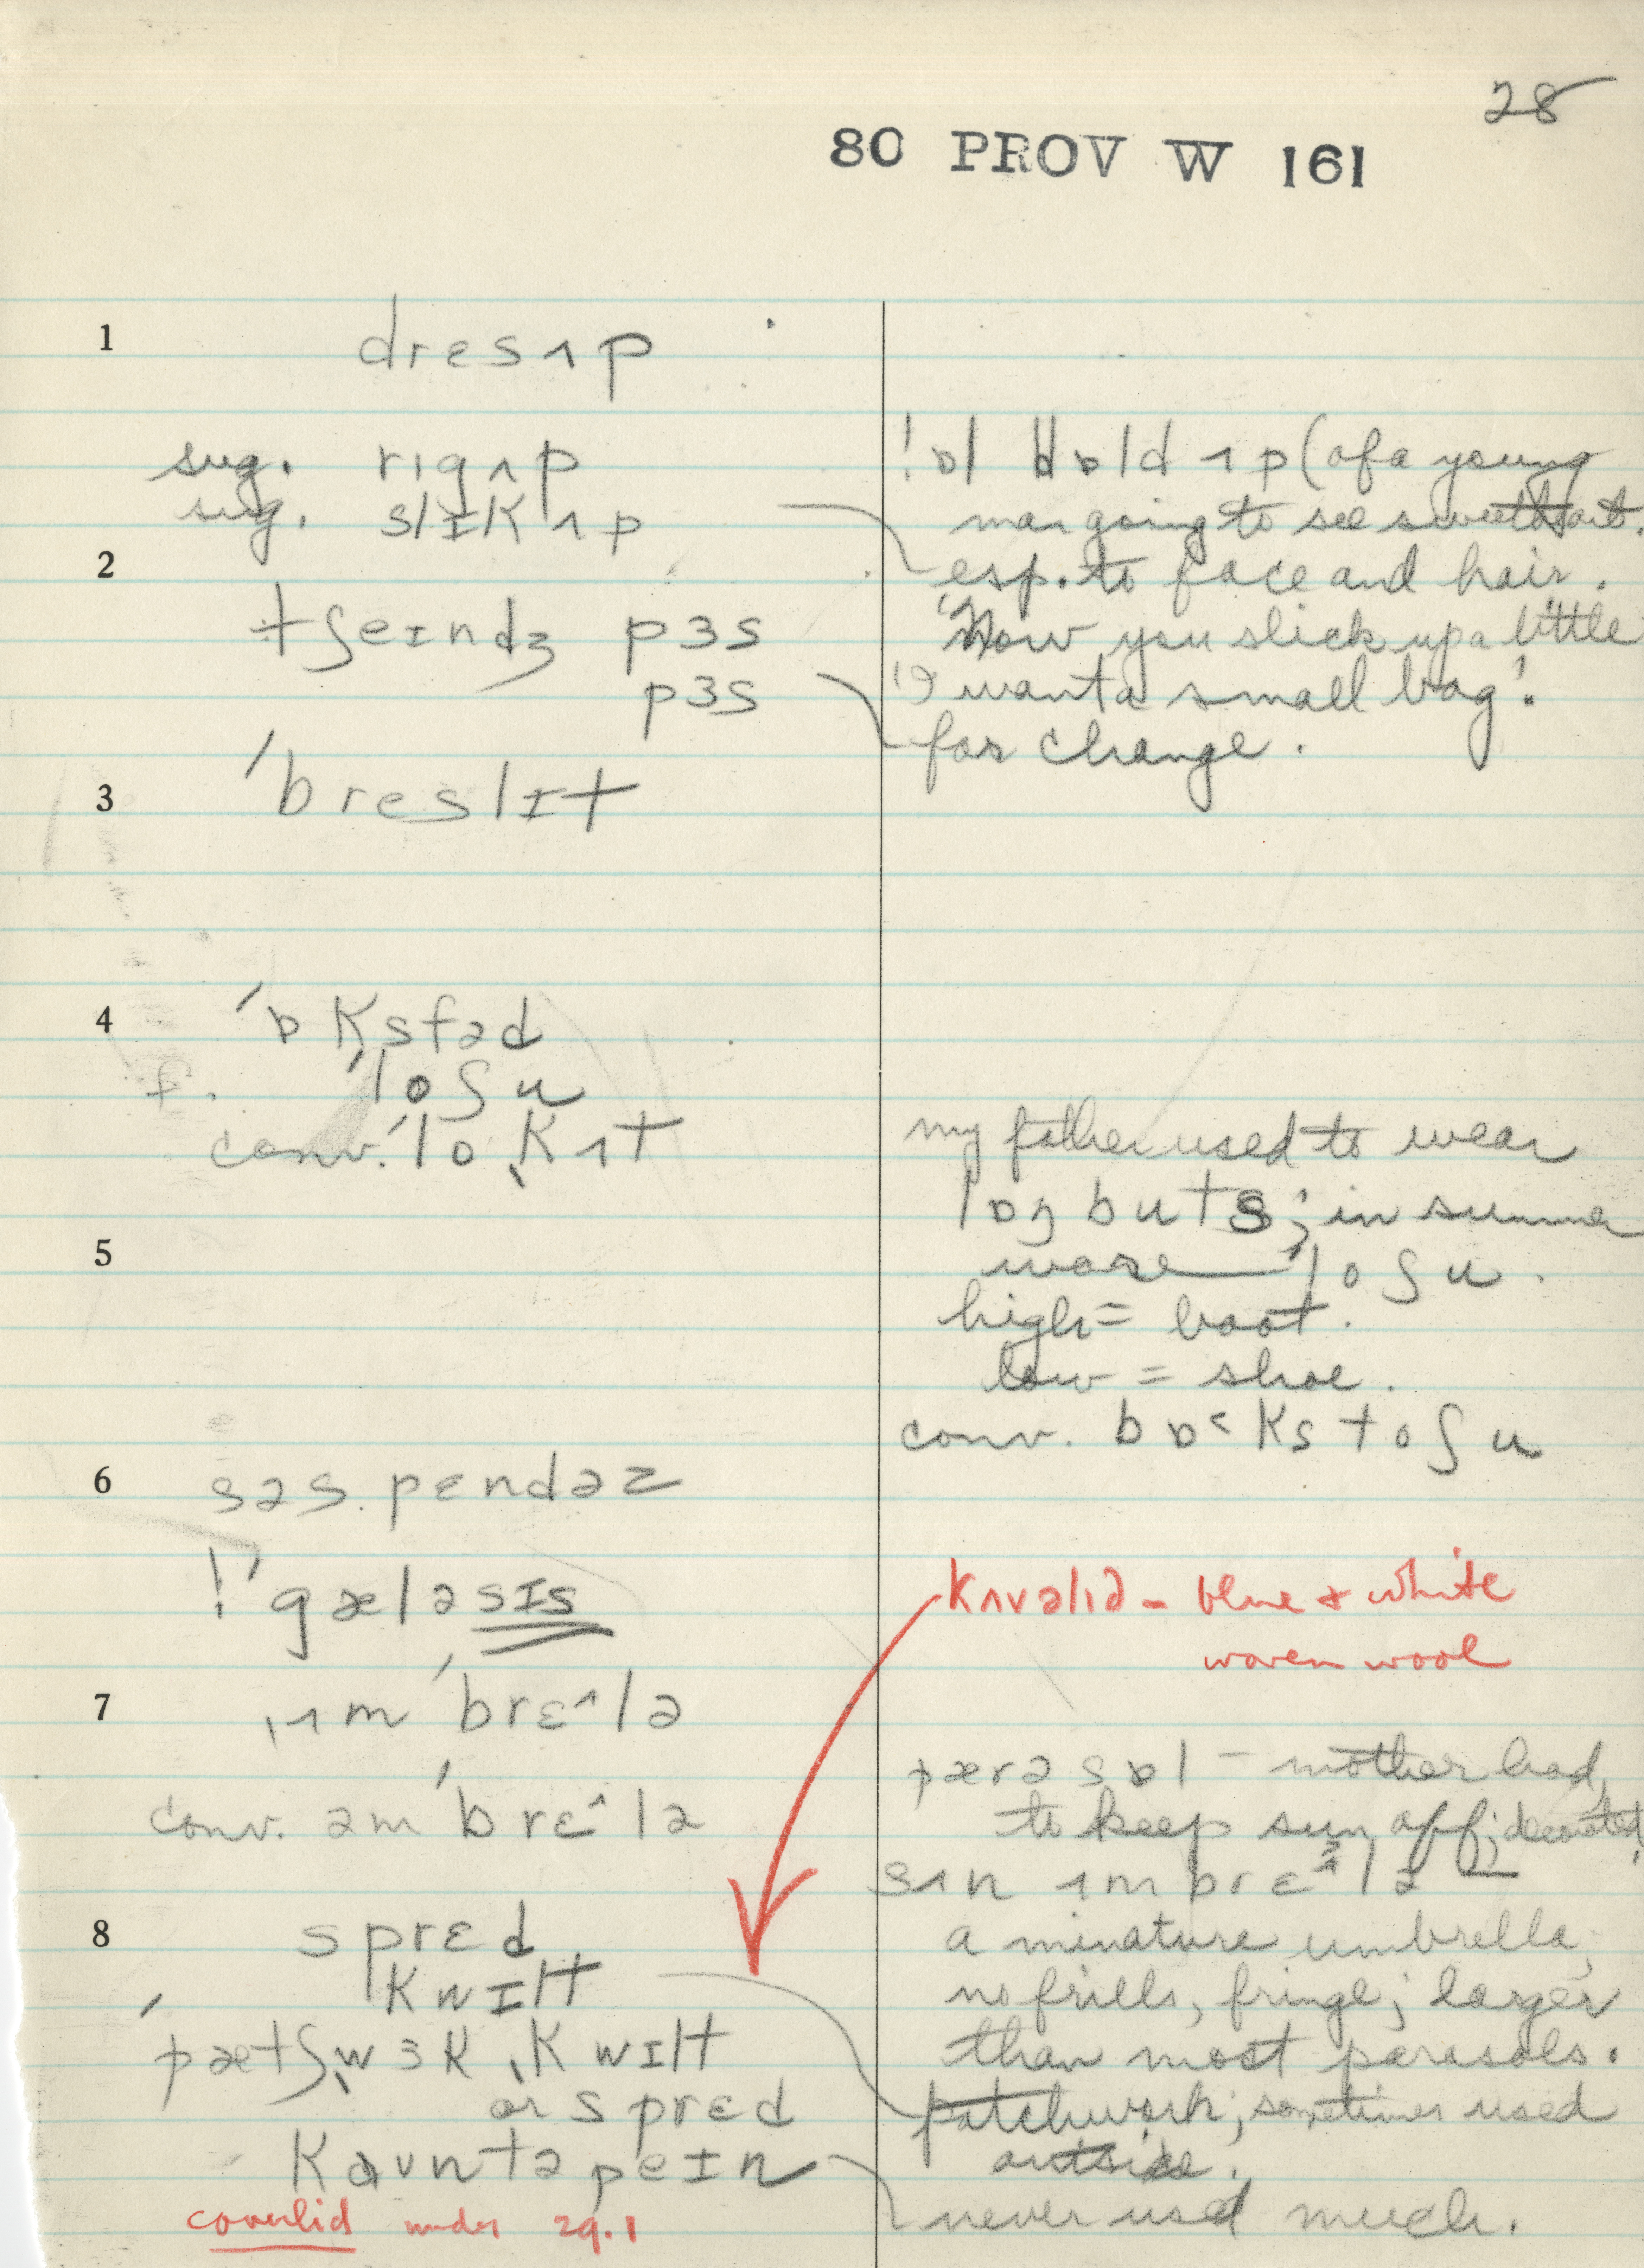 28
80 PROV W 161
1 drɛsʌp
sug. rɪgʌp
!ɒl ɒld ʌp (of a young
sug. slɪkʌp
man going to see sweetheart.
2
esp. to face and hair.
tʃeɪndʒ pɜs
"Now you slick up a little
pɜs
'I want a small bag'.
for change.
3 'breslɪt
4 'ɒksfəd
f. 'loʃu
conv. 'lo ˌkʌt
my father used to wear
lɒŋ buts; in summer
5
wore 'loʃu.
high = boot.
low = shoe.
conv. bɒ˂ks toʃu
6 səs.pɛndəz
!'gæləsɪs
kʌvəlɪd - blue & white
woven wool
7 ˌʌm'brɛ^lə
pærəsɒl - mother had,
conv. əm'brɛ^lə
to keep sun off; decorated,
sʌn ʌmbrɛ^lə
8 sprɛd
a minature umbrella,
kwɪlt
no frills, fringe; larger
'pætʃˌwɜk ˌkwɪlt
than most parasols.
or sprɛd
patchwork; sometimes used
outside.
kaʊntəpeɪn
never used much.
coverlid under 29.1